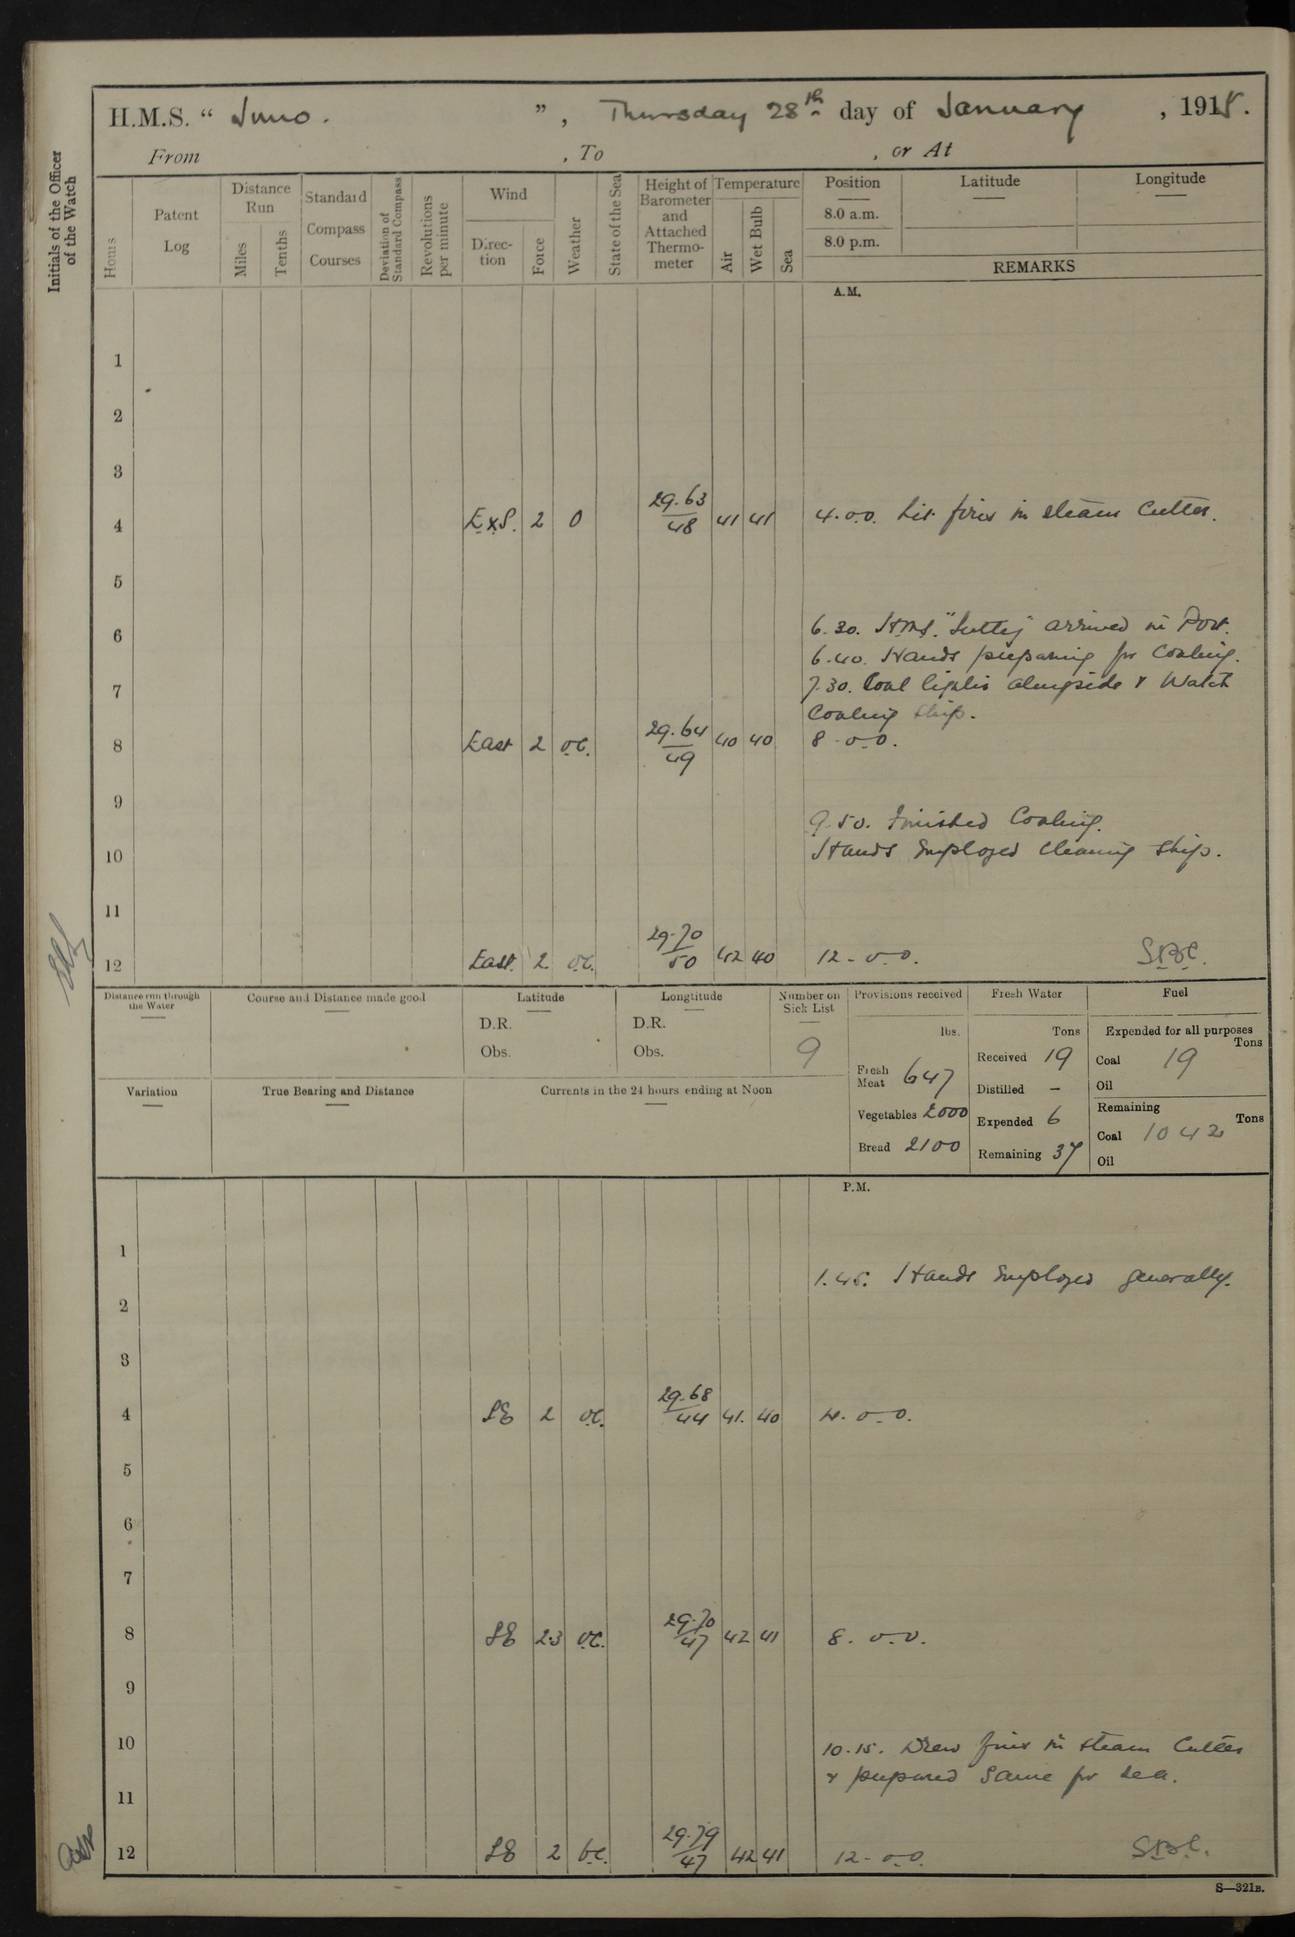 H.M.S. “ Juno. ” , Thursday 28th day of January , 1915.
From , To , or At
Initials of the Officer of the Watch
Hours
Patent Log
Distance Run
Miles
Tenths
Standard Compass Courses
Deviation of Standard Compass
Revolutions per minute
Wind
Direc-tion
Force
Weather
State of the Sea
Height of Barometer and Attached Thermo-meter
Temperature
Air
Wet Bulb
Sea
Position
8.0 a.m.
8.0 p.m.
Latitude
Longitude
REMARKS
A.M.
1
2
3
4 ExS. 2 O 29.63 48 41 41 4.0.0. Lit fires in steam Cutter.
5
6 6.30. H.M.S. "Sutlej" arrived in Port.
6.40. Hands preparing for Coaling.
7 7.30. Coal lighter alongside & Watch
Coaling Ship.
8 East 2 o.c. 29.64 49 40 40 8.0.0.
9
9.50. Finished Coaling.
10 Hands Employed cleaning Ship.
11
12 East. 2. o.c. 29.70 50 42 40 12.0.0. S.B.C.
Distance run through the Water
Course and Distance made good
Latitude
D.R.
Obs.
Longtitude
D.R.
Obs.
Number on Sick List
9
Provisions received
lbs.
Fresh Meat 647
Vegetables 2000
Bread 2100
Fresh Water
Tons
Received 19
Distilled –
Expended 6
Remaining 37
Fuel
Expended for all purposes
Tons
Coal 19
Oil
Remaining
Tons
Coal 1042
Oil
Variation
True Bearing and Distance
Currents in the 24 hours ending at Noon
P.M.
1
1.45. Hands Employed generally.
2
3
4 SE 2 o.c. 29.68 44 41. 40 4.0.0.
5
6
7
8 SE 2.3 o.c. 29.70 47 42 41 8.0.0.
9
10 10.15. Drew fires in steam Cutter
& prepared Same for Sea.
11
12 SE 2 b.c. 29.79 47 42 41 12.0.0. S.B.C.
S—321B.